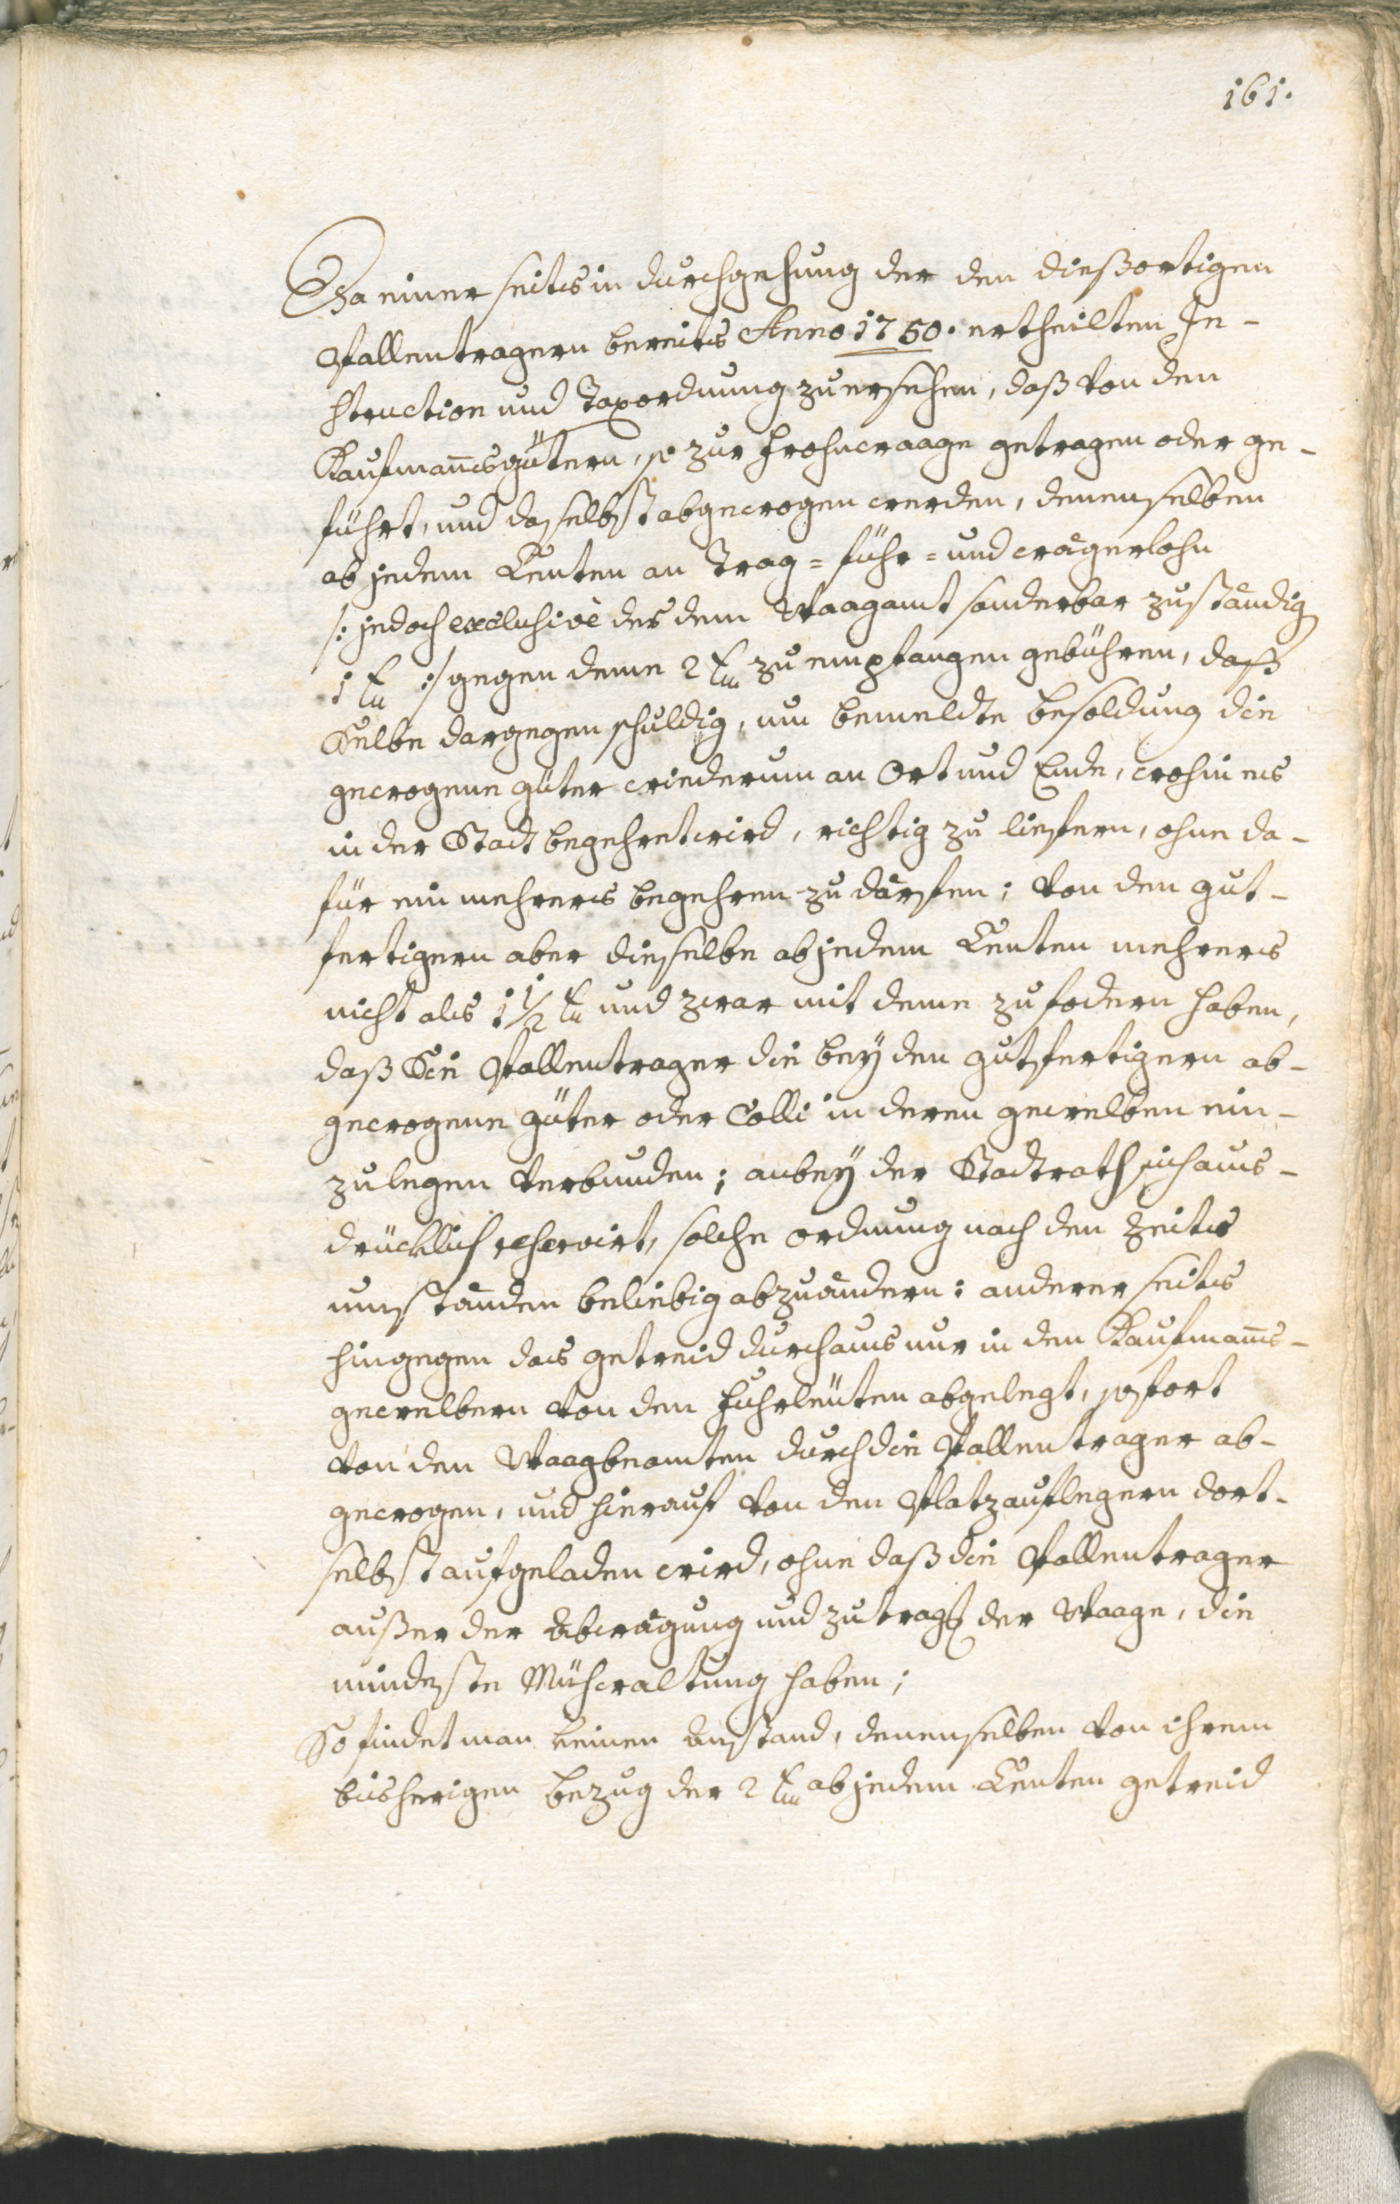 161.
Da einer seits in durchgehung der den dießortigen
Pallentragern bereits Anno 1750. ertheilten In-
struction und Taxordnung zu ersehen, daß von den
Kaufmañsgütern, so zur Frohnwaage getragen oder ge-
führt, und daselbst abgewogen werden, denenselben
ab jedem Centen an Trag- führ- und wägerlohn
/: jedoch exclusivè des dem Waagamt sonderbar zuständig
1 xr :/ gegen deme 2 xr zu empfangen gebühren, daß
Selbe dargegen schuldig, um bemeldte besoldung die
gewogene güter wiederum an Ort und Ende, wohin es
in der Stadt begehret wird, richtig zu liefern, ohne da-
für ein mehrers begehren zu därfen; von den gut-
fertigern aber dieselbe ab jedem Centen mehrers
nicht als 1 1/2 xr und zwar mit deme zu fodern haben,
daß Sie Pallentrager die bey den gutfertigern ab-
gewogene güter oder Colli in deren gewelben ein-
zulegen verbunden; anbey der Stadtrath sich aus-
drücklich reservirt, solche ordnung nach den Zeits
umständen beliebig abzuändern: anderer seits
hingegen das getreid durchaus nur in den Kaufmañs-
gewelbern von den fuhrleüten abgelegt, sofort
von den Waagbeamten durch die Pallentrager ab-
gewogen, und hierauf von den Platzauflegern dort-
selbst aufgeladen wird, ohne daß die Pallentrager
außer der Abwägung und zutrag der Waage, die
mindeste Mühewaltung haben;
So findet man keinen Anstand, denenselben von ihrem
bisherigen bezug der 2 xr ab jedem Centen getreid